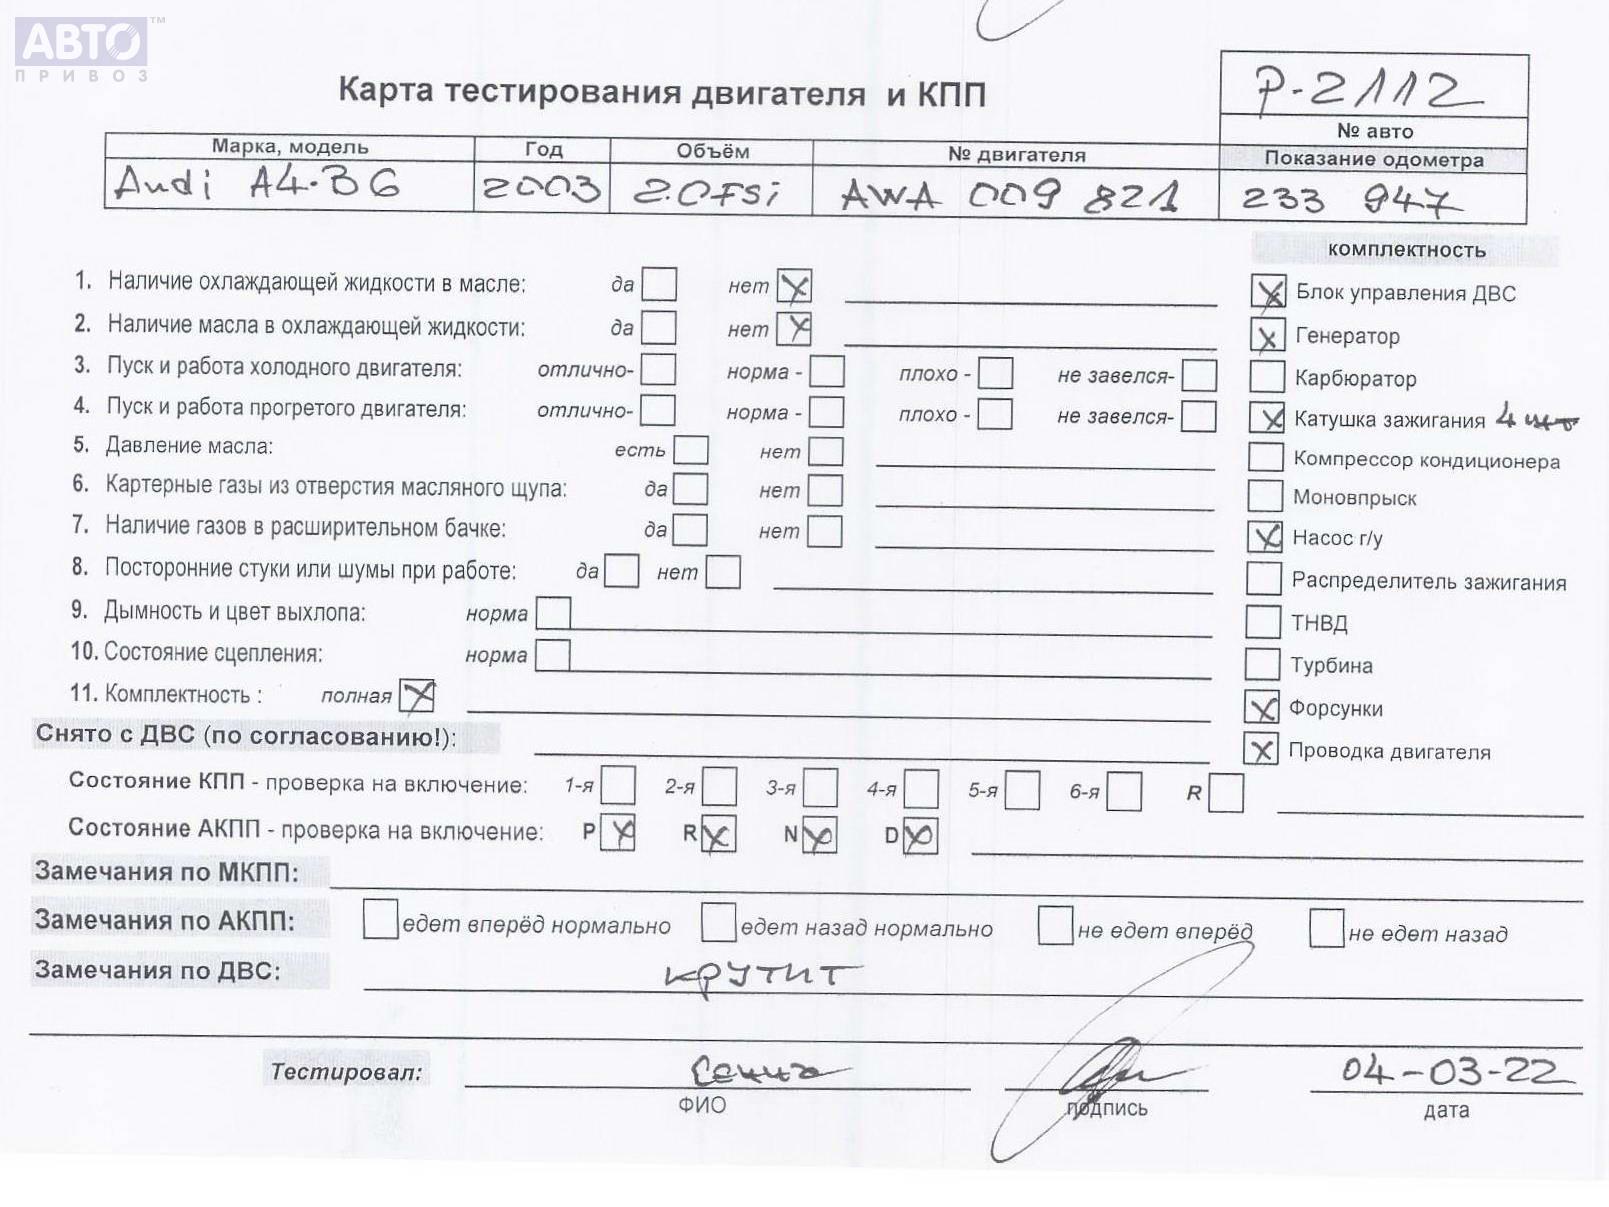 АВТО™
ПРИВОЗ
Карта тестирования двигателя и КПП
P-2112
№ авто
Марка, модель Год Объём № двигателя Показание одометра
Audi A4-B6 2003 2.0FSi AWA 009 821 233 947
комплектность
1. Наличие охлаждающей жидкости в масле: да нет
Блок управления ДВС
2. Наличие масла в охлаждающей жидкости: да нет
Генератор
3. Пуск и работа холодного двигателя: отлично- норма - плохо - не завелся-
Карбюратор
4. Пуск и работа прогретого двигателя: отлично- норма - плохо - не завелся-
Катушка зажигания 4 шт
5. Давление масла: есть нет
Компрессор кондиционера
6. Картерные газы из отверстия масляного щупа: да нет
Моновпрыск
7. Наличие газов в расширительном бачке: да нет
Насос г/у
8. Посторонние стуки или шумы при работе: да нет
Распределитель зажигания
9. Дымность и цвет выхлопа: норма
ТНВД
10. Состояние сцепления: норма
Турбина
11. Комплектность : полная
Форсунки
Снято с ДВС (по согласованию!):
Проводка двигателя
Состояние КПП - проверка на включение: 1-я 2-я 3-я 4-я 5-я 6-я R
Состояние АКПП - проверка на включение: P R N D
Замечания по МКПП:
Замечания по АКПП: едет вперёд нормально едет назад нормально не едет вперёд не едет назад
Замечания по ДВС: крутит
Тестировал: 04-03-22
ФИО подпись дата